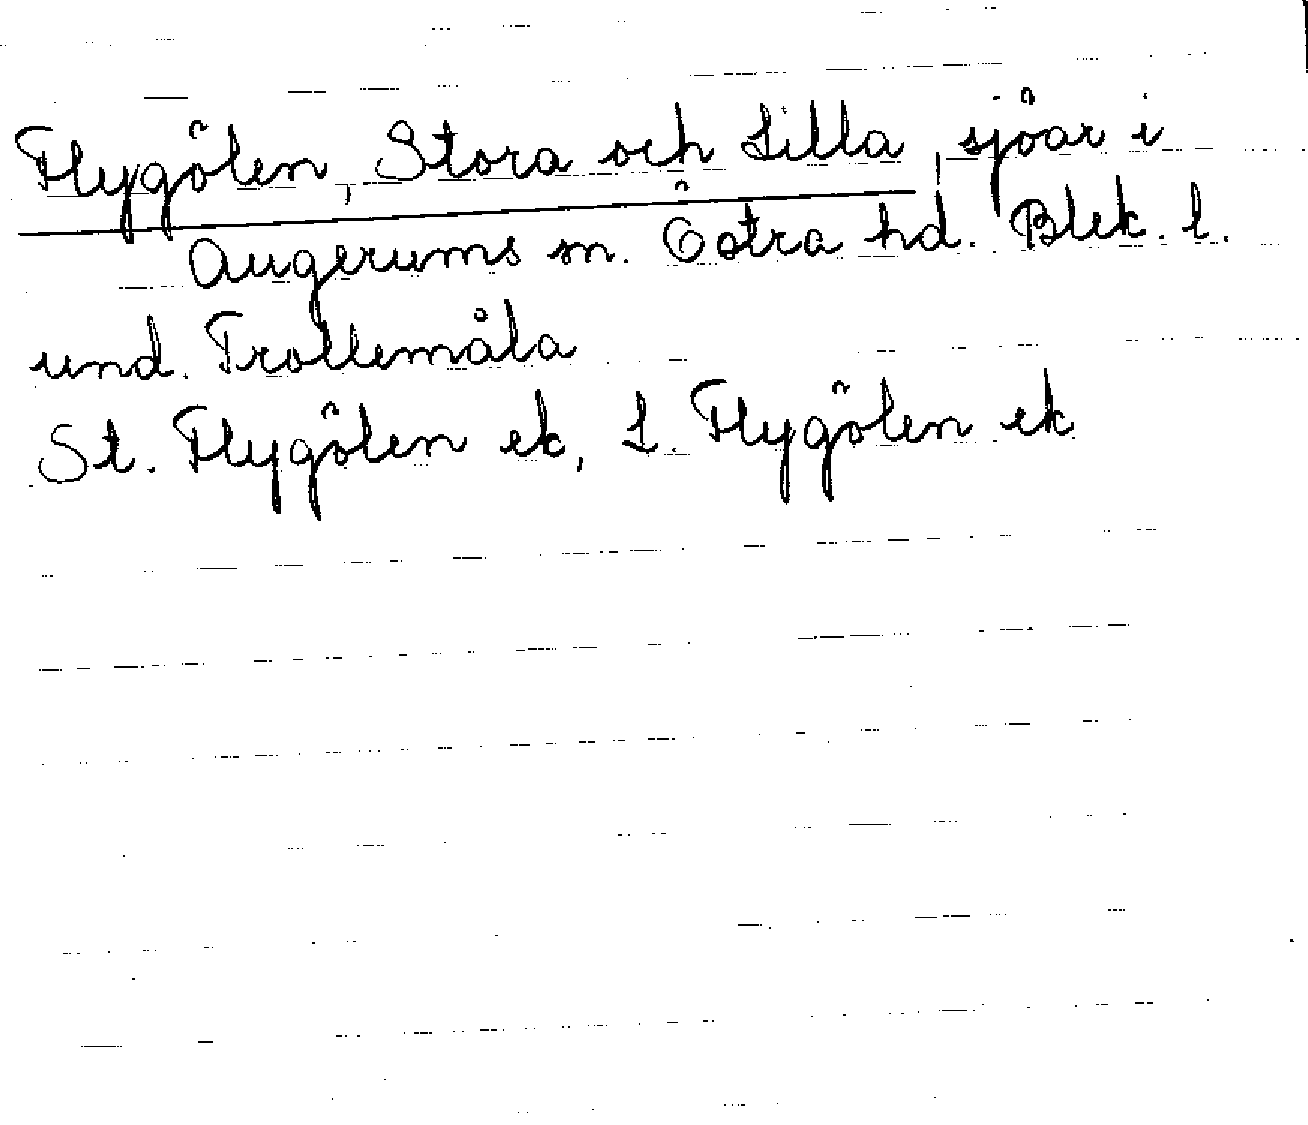 Flygölen, Stora och Lilla, sjöar i
Augerums sn. Östra hd. Blek. l.
und. Trollemåla
St. Flygölen ek, L. Flygölen ek